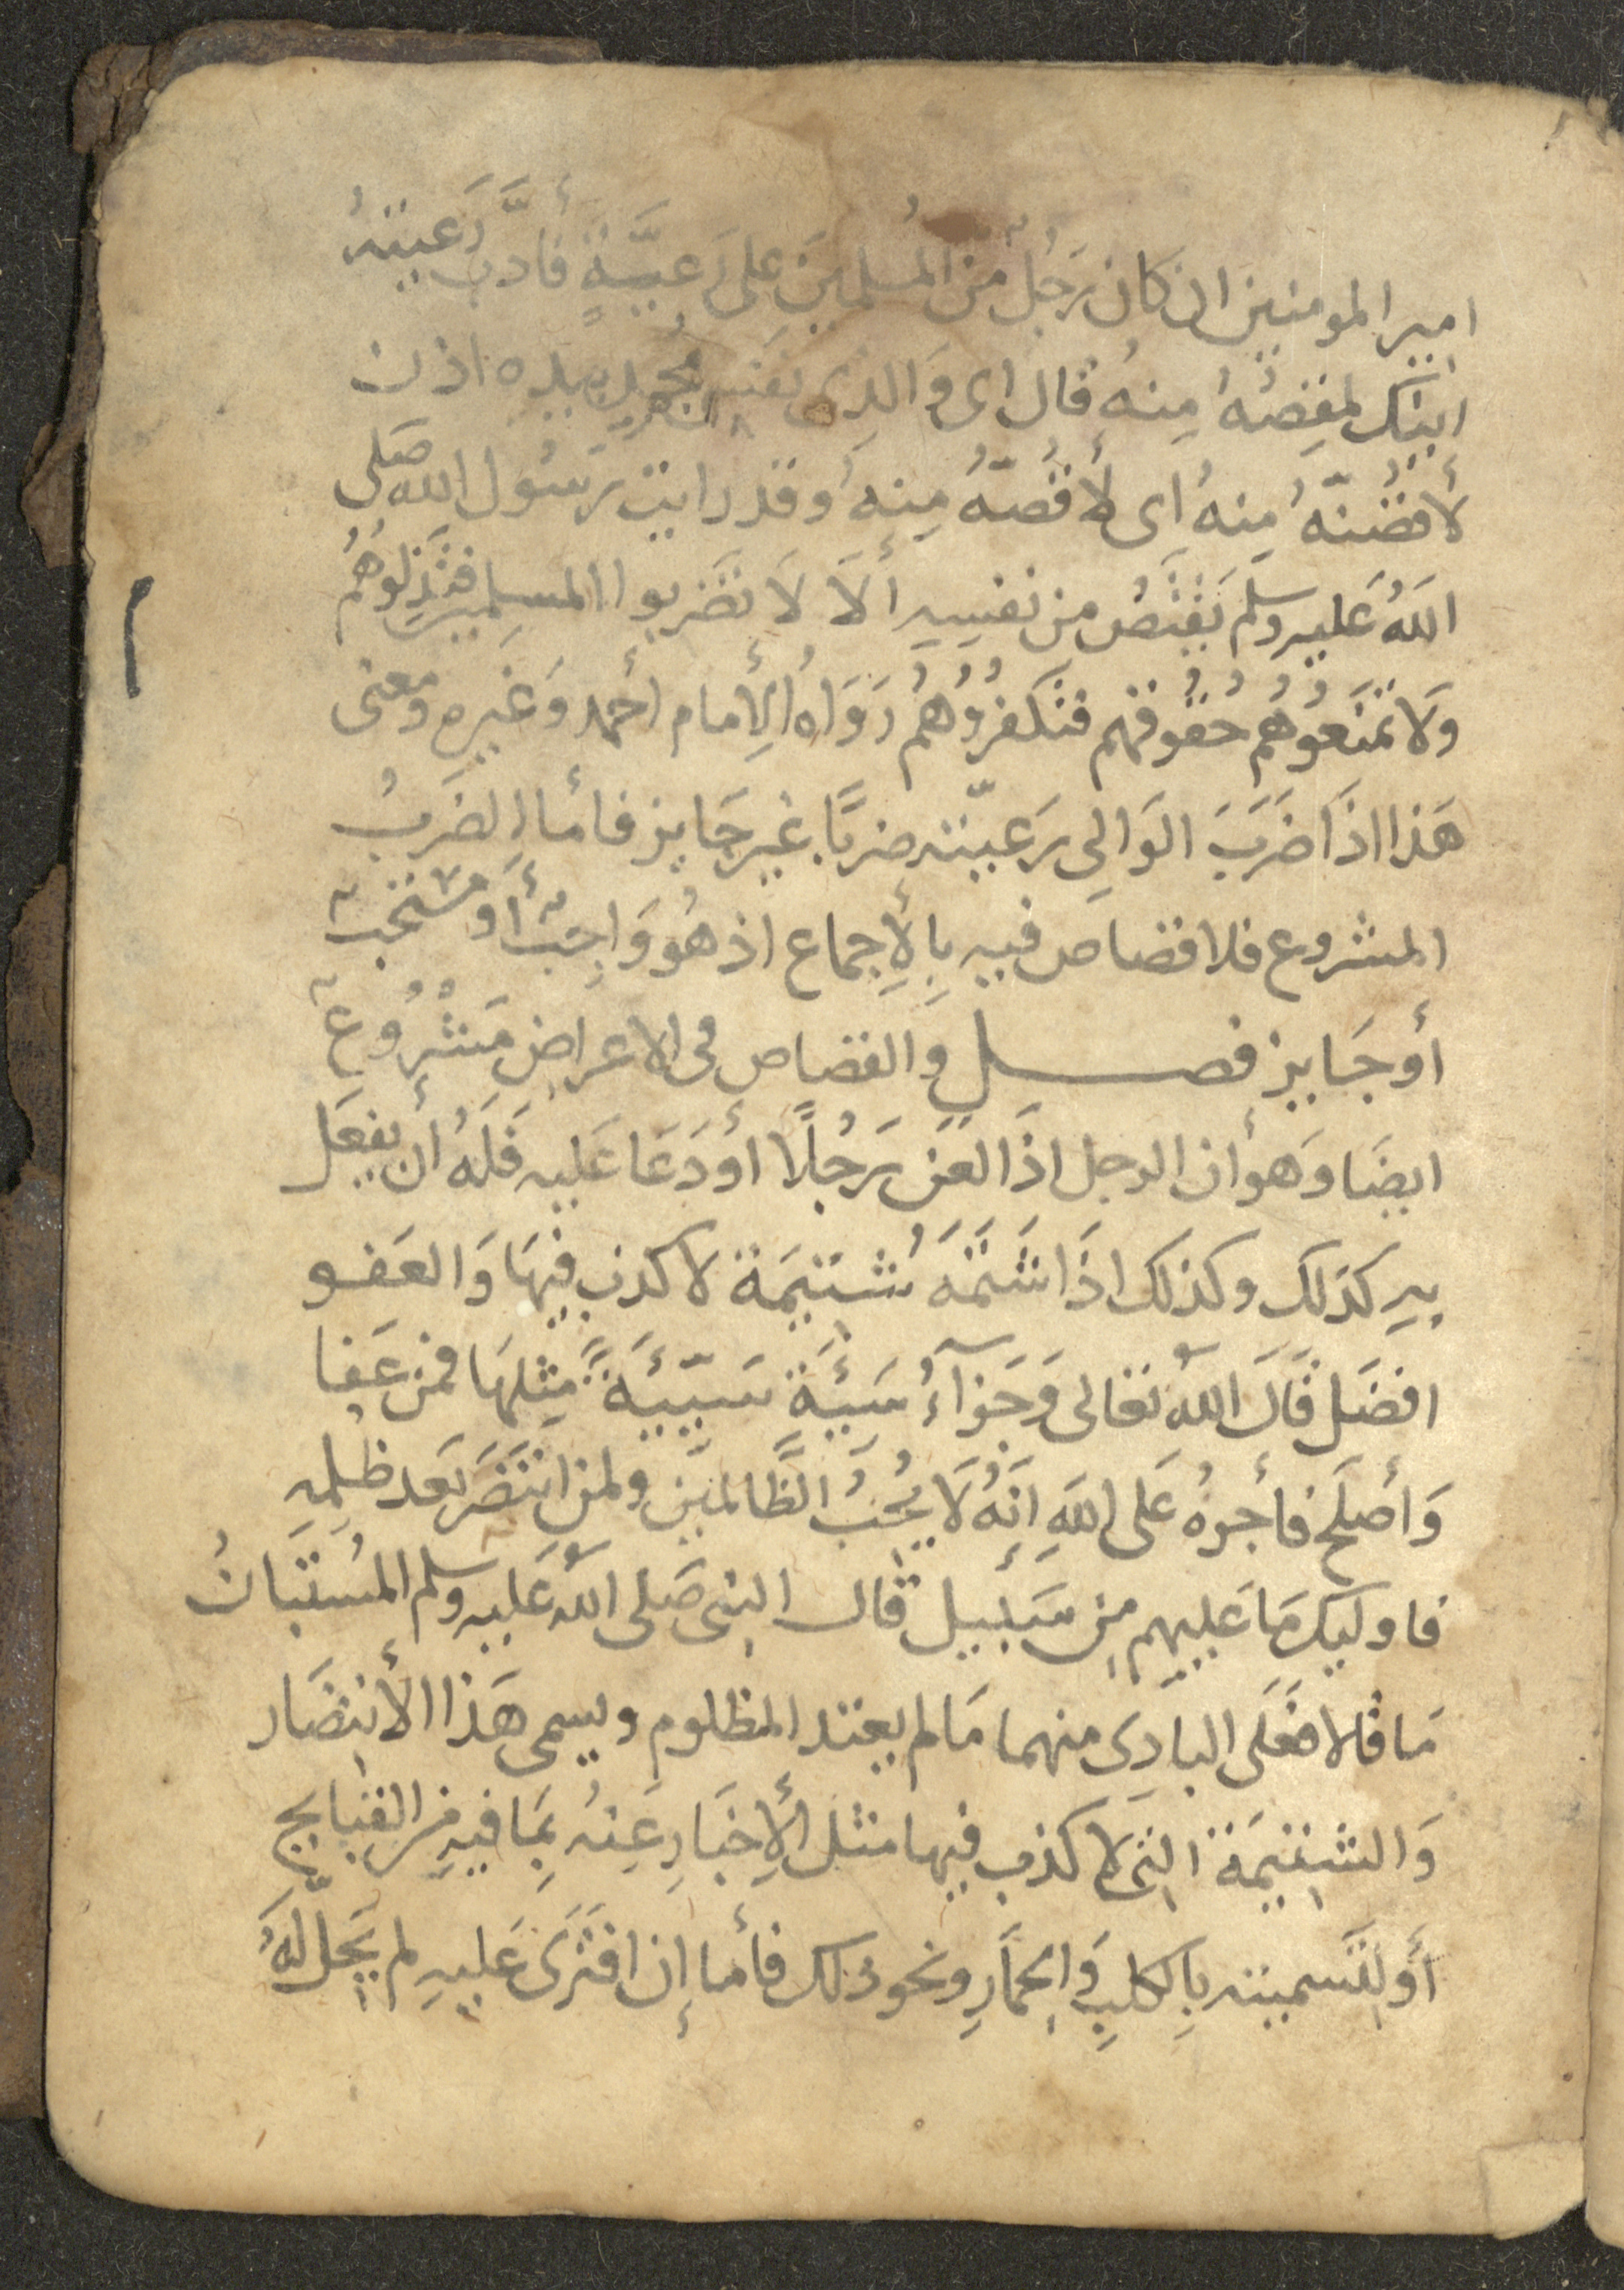 امير المومنين ان كان رَجُلٌ منَ المُسلِمينَ على رَعيّةٍ فأدّبَ رَعيتهُ
ائنك لمقِصّهُ مِنهُ قال اى وَالذِى نفس محمد بيده اذن
لأقصّنهُ مِنهُ اى لأقُصّهُ مِنهُ وقد رايت رَسُول الله صَلى
اللهُ عَليهِ وسلم يَقتَصُ من نفسِهِ ألاَ لاَ تضَربوا المسلِمين فتذِلوهُم
وَلا تمنَعوُهُم حُقُوقهم فتكفرُوُهُم رَوَاهُ الإمام أحمد وَغيره ومعنى
هَذا اذَا ضَرَبَ الوَالِى رَعيّته ضربًا غير جَايز فأما الضَربُ
المشروع فلا قصاص فيه بِالإجماع اذ هُو وَاجِبٌ أو مستحبٌ
أو جَايز فصل والقصاص فى الاعراضِ مَشْرُوعٌ
ايضَا وَهو أن الرجل اذَا لعن رَجُلًا أو دَعَا عَليه فَلَهُ أن يفعَل
بهِ كذلك وكذلك اذَا شَتَمَهُ شتيمَة لا كذب فيهَا وَالعَفو
افضَل قَالَ اللهُ تعَالى وَجَزآءُ سَيئَة سَيّئَةً مِثلهَا فمن عَفا
وَأصلَح فأجرهُ عَلى اللهِ انّهُ لاَ يُحبُّ الظَّالمين ولمن انتَصَرَ بَعد ظلمِهِ
فاوليك مَا عَليهم مِن سَبيل قَال النبى صَلى اللهُ عَليه وسلم المُستَبَانُ
مَا قالا فعَلى البادِى منهما مَا لم يعتد المظلوم ويسمى هَذا الأنتصَار
وَالشتيمَة التى لا كذب فيها مثل الإخبَارِ عَنهُ بِمَا فيهِ من القبَايح
أو لتَسميته بِالكلبِ وَالحمَارِ ونحو ذلك فأما إن افتَرَى عَليهِ لم يَحِلّ لَهُ